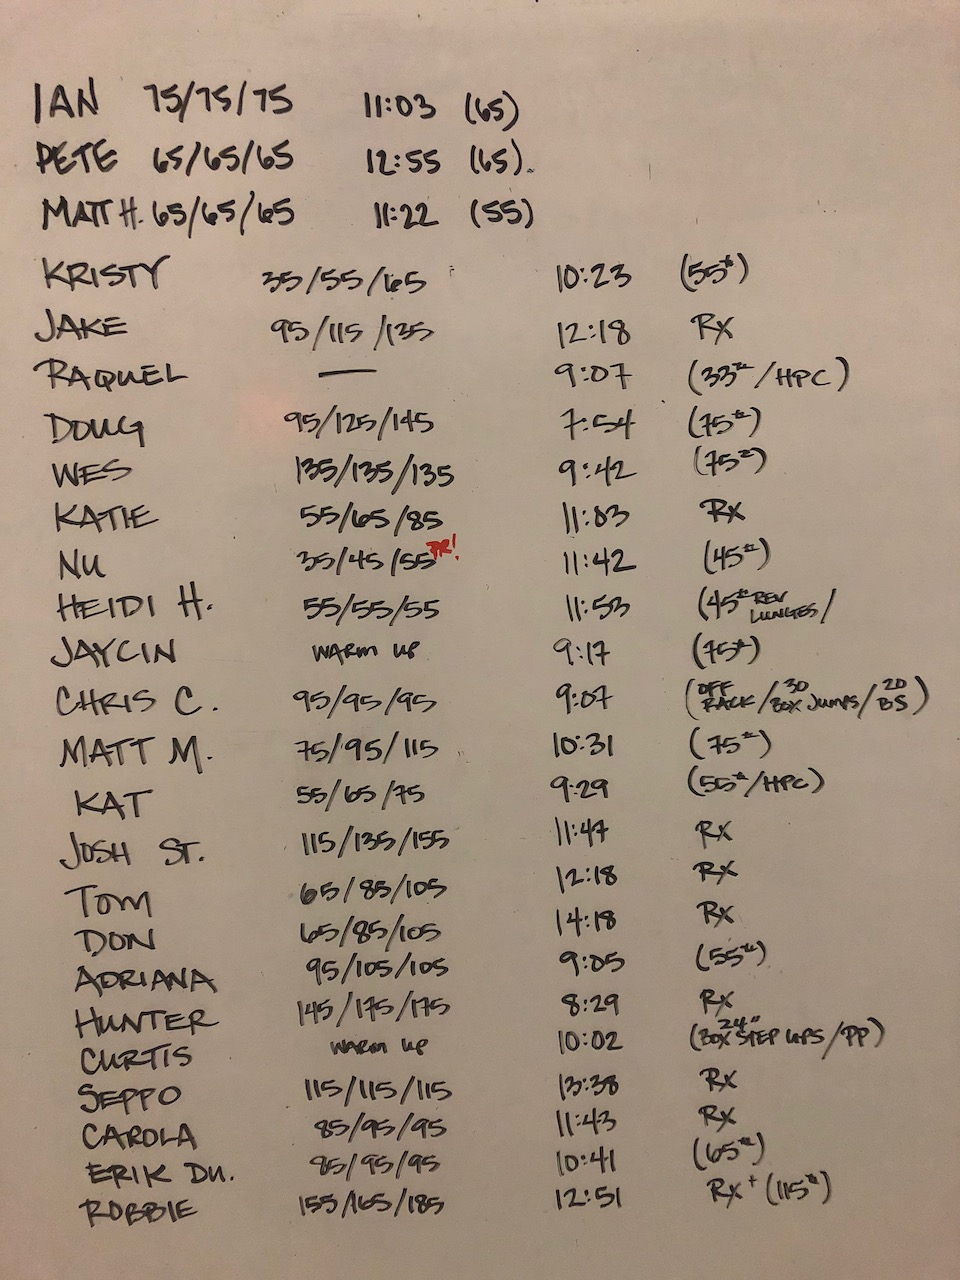 IAN 75/75/75 11:03 (65)
PETE 65/65/65 12:55 (65).
MATT H. 65/65/65 11:22 (55)
KRISTY 35/55/65 10:23 (55#)
JAKE 95/115/135 12:18 Rx
RAQUEL — 9:07 (33#/HPC)
DOUG 95/125/145 7:54 (75#)
WES 135/135/135 9:42 (75#)
KATIE 55/65/85 11:03 Rx
NU 35/45/55 PR! 11:42 (45#)
HEIDI H. 55/55/55 11:53 (45# REV LUNGES/
JAYCIN WARM UP 9:17 (75#)
CHRIS C. 95/95/95 9:07 (OFF RACK/30 BOX JUMPS/20 BS)
MATT M. 75/95/115 10:31 (75#)
KAT 55/65/75 9:29 (55#/HPC)
JOSH ST. 115/135/155 11:47 Rx
TOM 65/85/105 12:18 Rx
DON 65/85/105 14:18 Rx
ADRIANA 95/105/105 9:05 (55#)
HUNTER 145/175/175 8:29 Rx
CURTIS WARM UP 10:02 (24" BOX STEP UPS/PP)
SEPPO 115/115/115 13:38 Rx
CAROLA 85/95/95 11:43 Rx
ERIK DU. 85/95/95 10:41 (65#)
ROBBIE 155/165/185 12:51 Rx+ (115#)